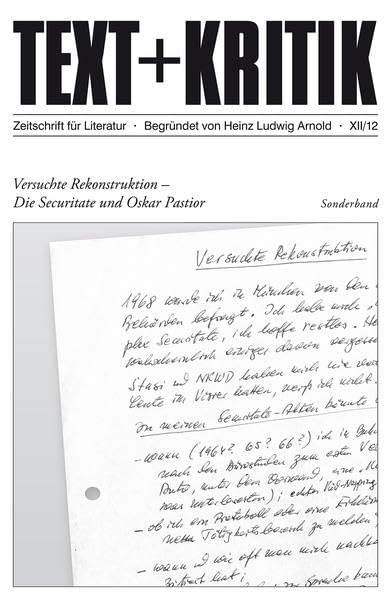 TEXT+KRITIK
Zeitschrift für Literatur · Begründet von Heinz Ludwig Arnold · XII/12
Versuchte Rekonstruktion –
Die Securitate und Oskar Pastior
Sonderband
Versuchte Rekonstruktion
1968 wurde ich in München von den
Behörden befragt. Ich habe mich
Securitate, ich hoffe restlos.
wahrscheinlich einiger davon
Stasi und NKWD haben mich nie
Leute im Visier hatten, weiß ich nicht.
In meinen Securitate-Akten könnte
– wann (1964? 65? 66?) ich in
nach den Bürostunden zum ersten
Auto, unter dem Vorwand, eine
; echtes Kid-Napping
– ob ich ein Protokoll oder eine
neue Tätigkeitsbereich zu melden
– wann und wie oft man mich
zitiert hat;